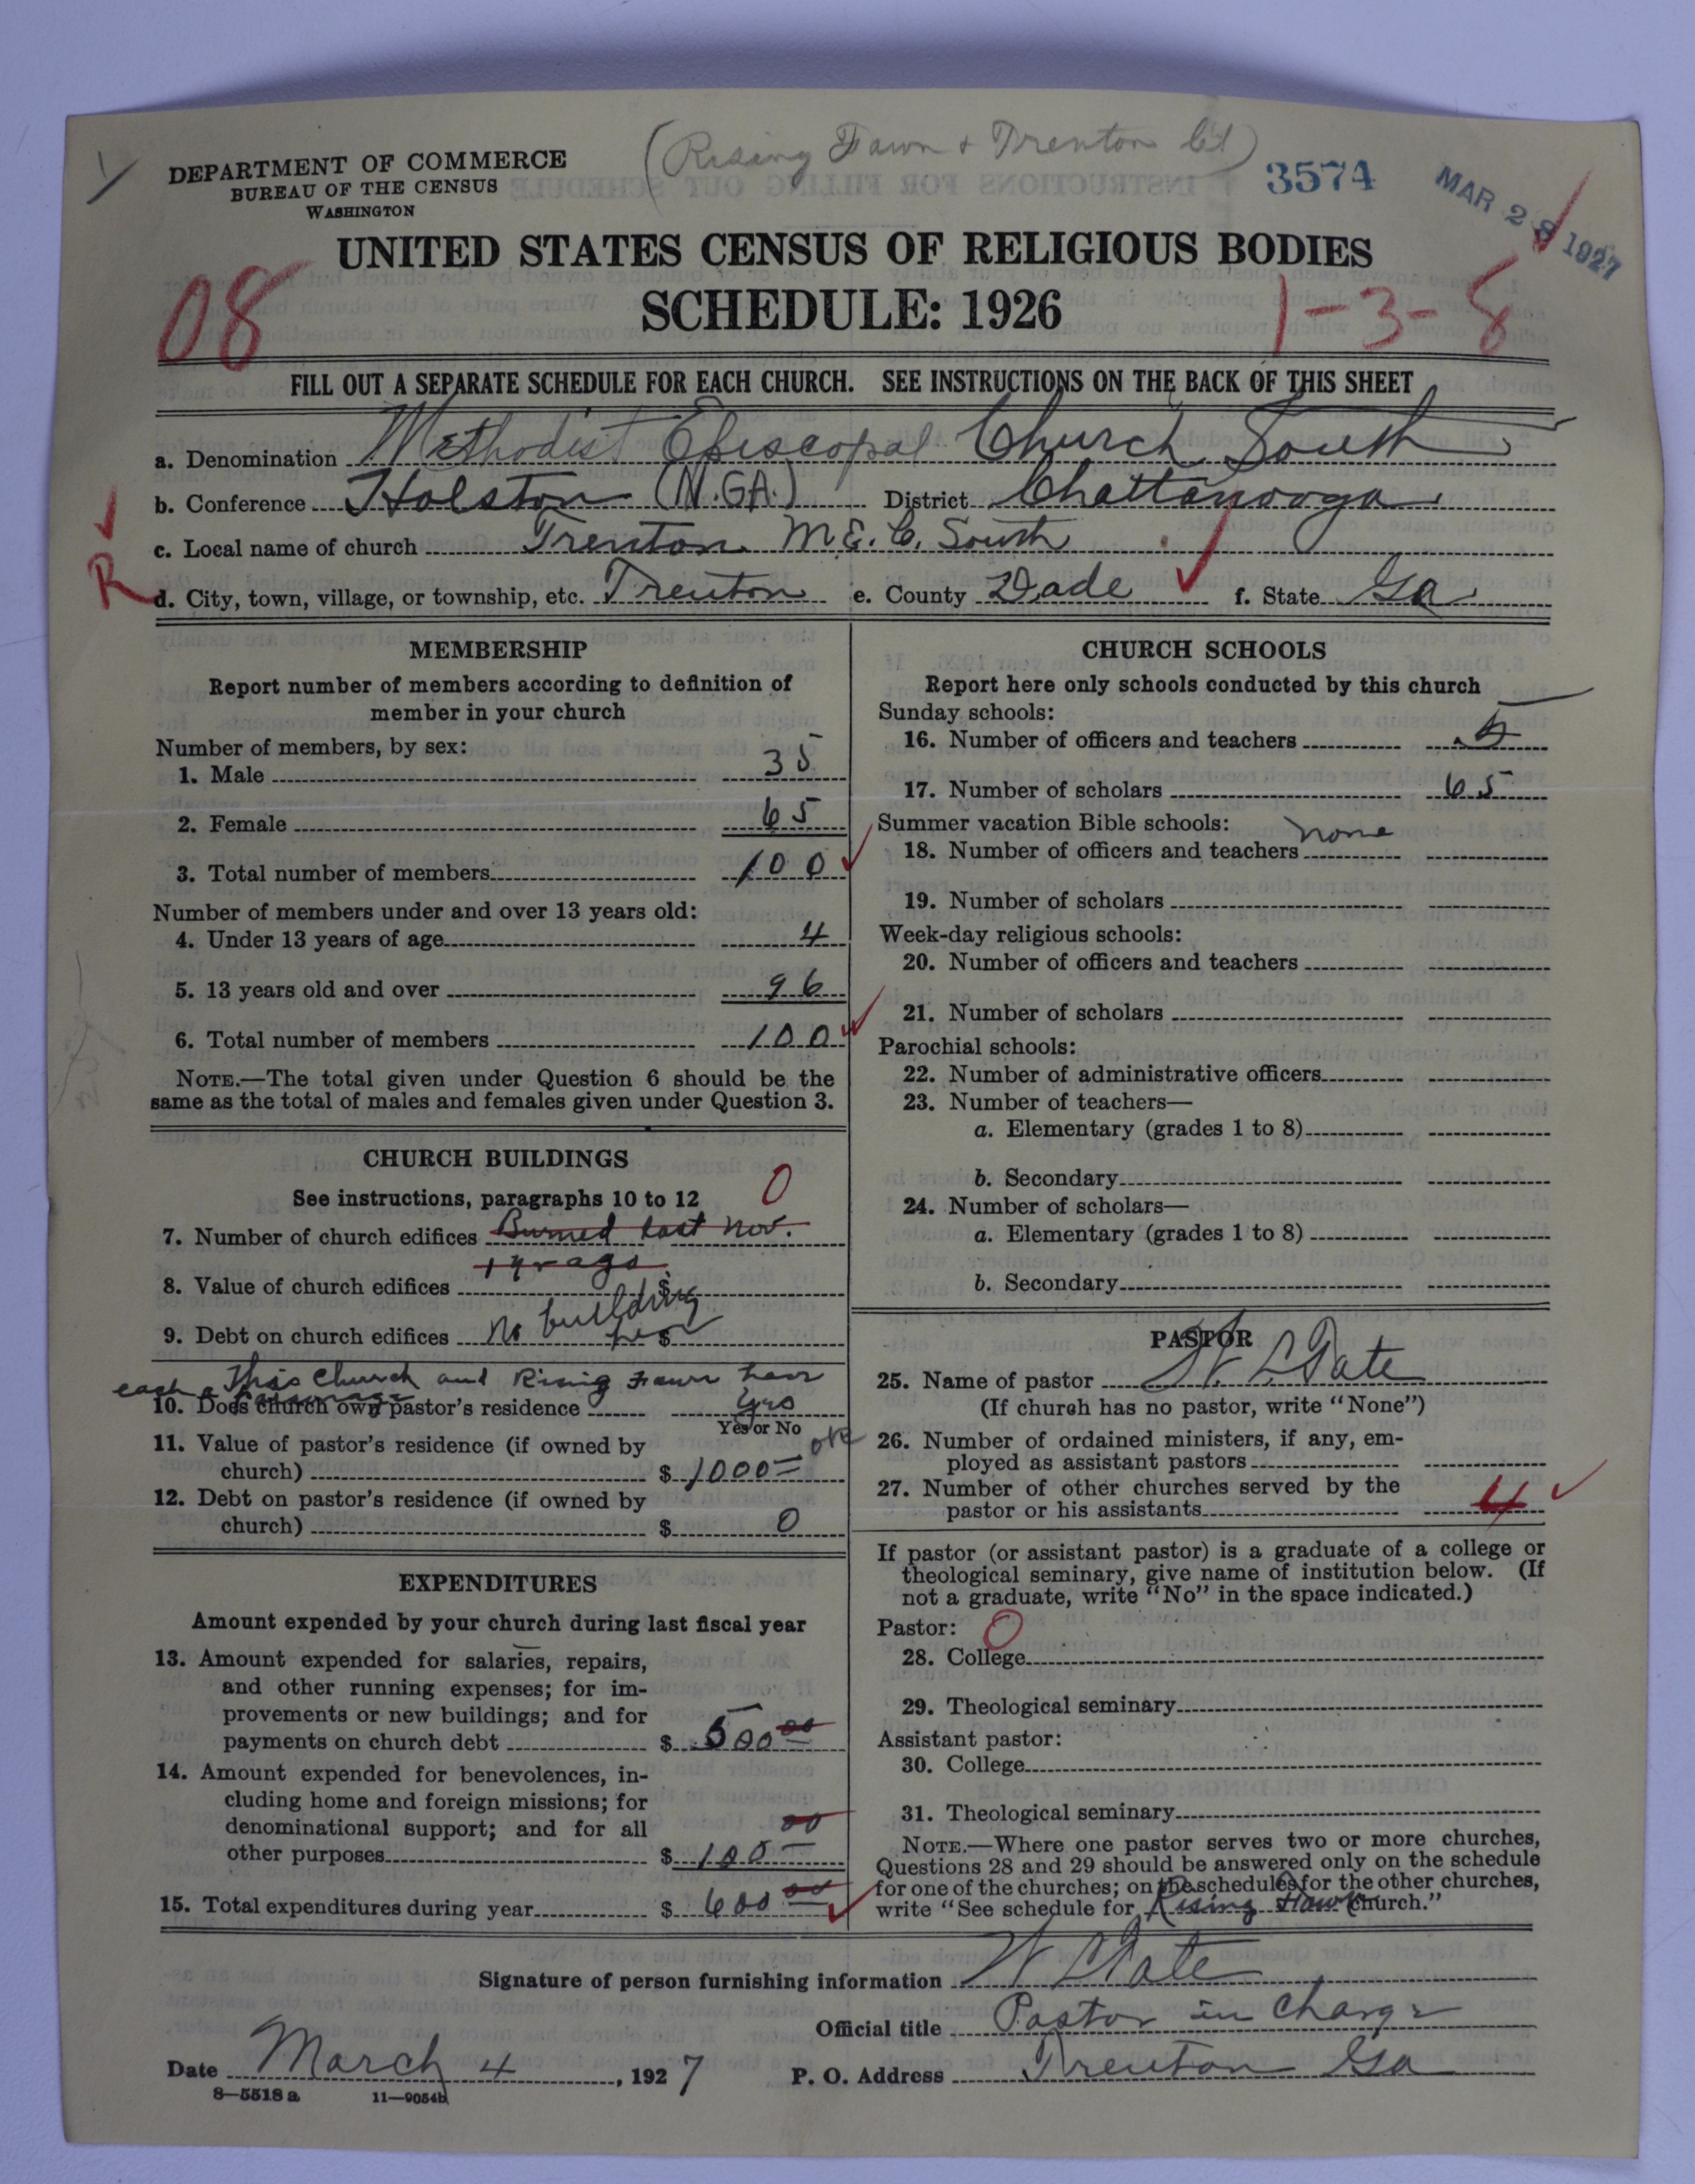 (Rising Fawn & Trenton Ct)
DEPARTMENT OF COMMERCE
BUREAU OF THE CENSUS
WASHINGTON
3574
MAR 28 1927
UNITED STATES CENSUS OF RELIGIOUS BODIES
SCHEDULE: 1926
08
1-3-8
FILL OUT A SEPARATE SCHEDULE FOR EACH CHURCH. SEE INSTRUCTIONS ON THE BACK OF THIS SHEET
a. Denomination Methodist Episcopal Church South
b. Conference Holston (N.GA.) District Chattanooga
c. Local name of church Trenton M.E.C. South
R
d. City, town, village, or township, etc. Trenton e. County Dade f. State Ga
MEMBERSHIP
Report number of members according to definition of
member in your church
Number of members, by sex:
1. Male 35
2. Female 65
3. Total number of members 100
Number of members under and over 13 years old:
4. Under 13 years of age 4
5. 13 years old and over 96
6. Total number of members 100
NOTE.—The total given under Question 6 should be the
same as the total of males and females given under Question 3.
CHURCH BUILDINGS
See instructions, paragraphs 10 to 12 0
7. Number of church edifices Burned last Nov.
1 yr ago
8. Value of church edifices $
9. Debt on church edifices No building here $
This Church and Rising Fawn have
each a Parsonage
10. Does church own pastor's residence Yes
Yes or No
11. Value of pastor's residence (if owned by
church) $ 1000= ok
12. Debt on pastor's residence (if owned by
church) $ 0
EXPENDITURES
Amount expended by your church during last fiscal year
13. Amount expended for salaries, repairs,
and other running expenses; for im-
provements or new buildings; and for
payments on church debt $ 500 00
14. Amount expended for benevolences, in-
cluding home and foreign missions; for
denominational support; and for all
other purposes $ 100 00
15. Total expenditures during year $ 600 00
CHURCH SCHOOLS
Report here only schools conducted by this church
Sunday schools:
16. Number of officers and teachers 5
17. Number of scholars 65
Summer vacation Bible schools:
18. Number of officers and teachers none
19. Number of scholars
Week-day religious schools:
20. Number of officers and teachers
21. Number of scholars
Parochial schools:
22. Number of administrative officers
23. Number of teachers—
a. Elementary (grades 1 to 8)
b. Secondary
24. Number of scholars—
a. Elementary (grades 1 to 8)
b. Secondary
PASTOR
25. Name of pastor W. L. Tate
(If church has no pastor, write "None")
26. Number of ordained ministers, if any, em-
ployed as assistant pastors
27. Number of other churches served by the
pastor or his assistants 4
If pastor (or assistant pastor) is a graduate of a college or
theological seminary, give name of institution below. (If
not a graduate, write "No" in the space indicated.)
Pastor: 0
28. College
29. Theological seminary
Assistant pastor:
30. College
31. Theological seminary
NOTE.—Where one pastor serves two or more churches,
Questions 28 and 29 should be answered only on the schedule
for one of the churches; on the schedules for the other churches,
write "See schedule for Rising Fawn church."
Signature of person furnishing information W L Tate
Official title Pastor in Charge
Date March 4, 1927 P. O. Address Trenton Ga
8—5518 a 11—9054b